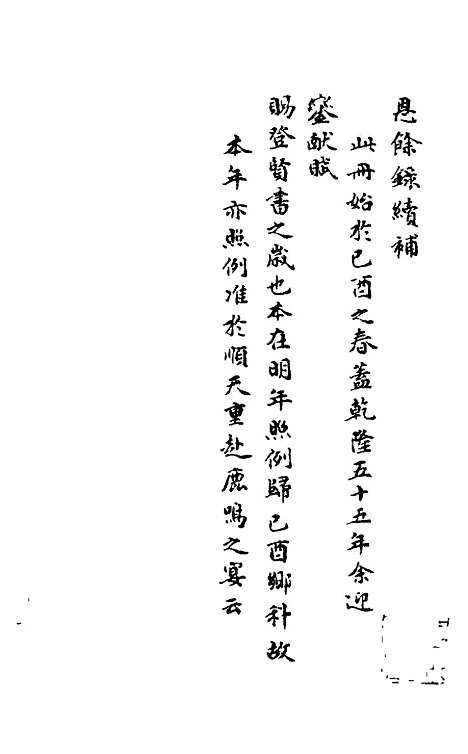 恩餘錄續補
此冊始於己酉之春蓋乾隆五十五年余迎
鑾献賦
賜登賢書之歲也本在明年照例歸己酉鄉科故
本年亦照例准於順天重赴鹿鳴之宴云